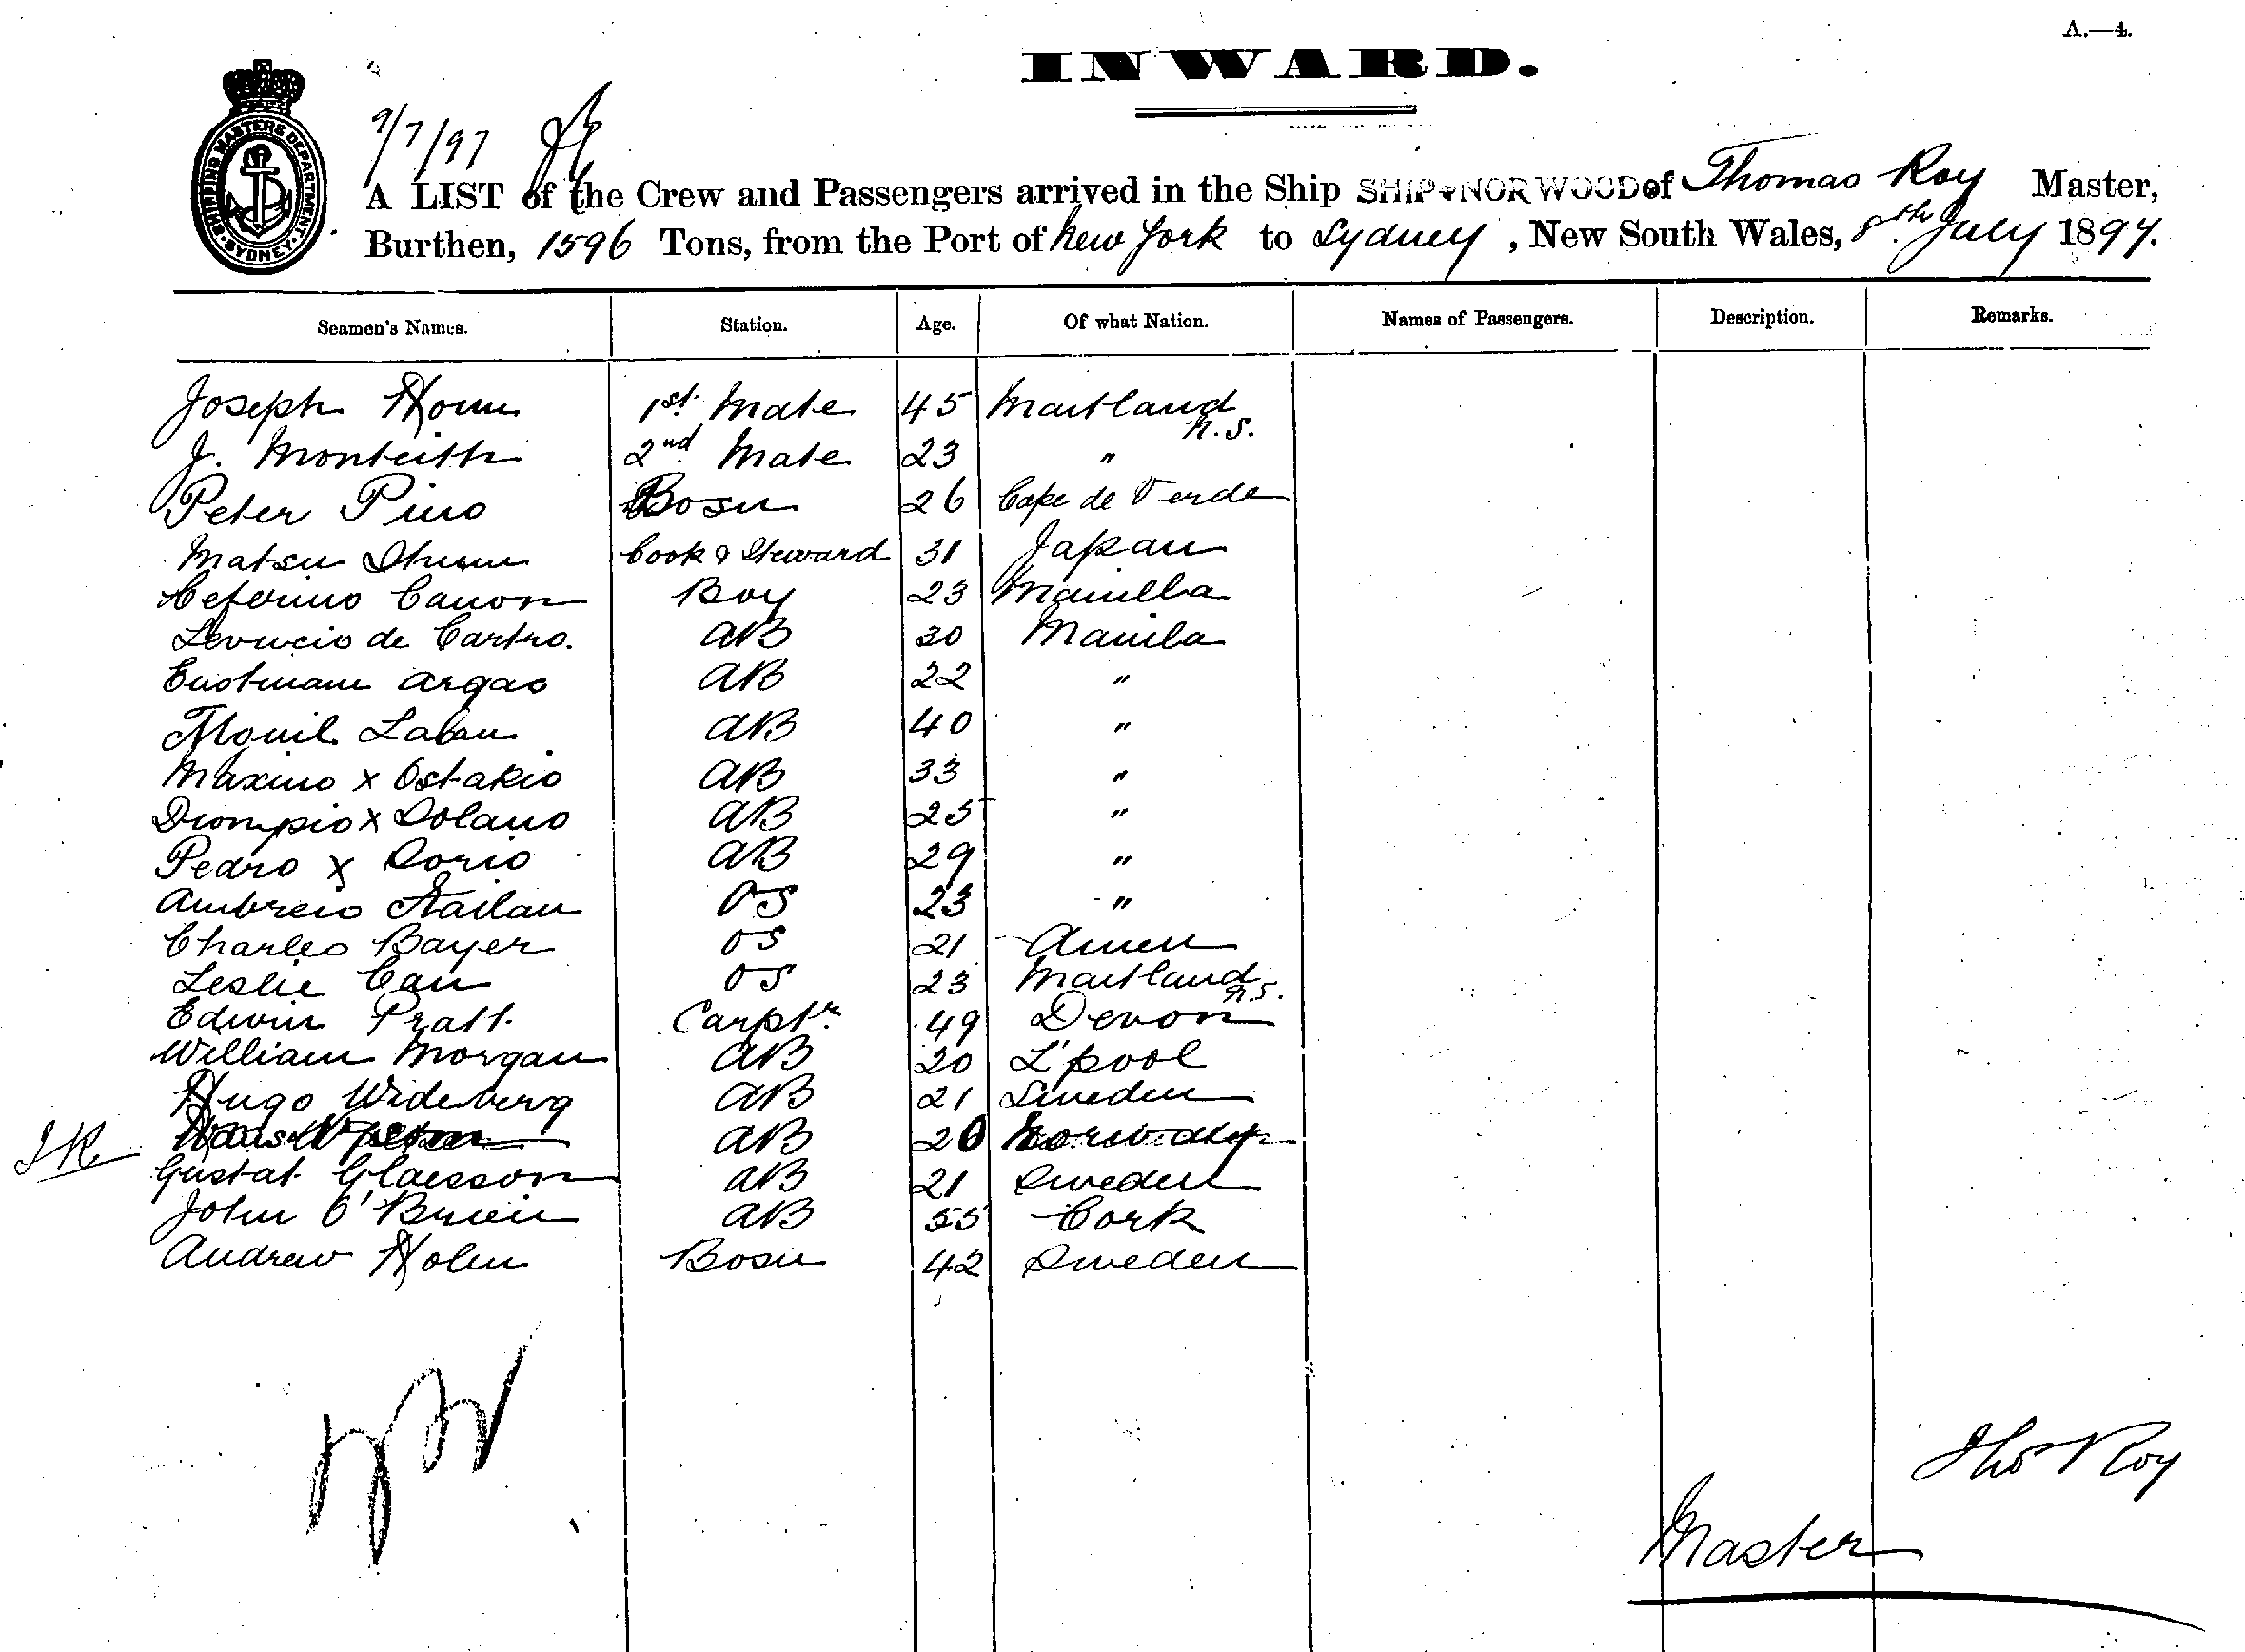 A.—4.
INWARD.
SHIPPING MASTERS DEPARTMENT. SYDNEY.
9/7/97
A LIST of the Crew and Passengers arrived in the Ship SHIP NORWOOD of Thomas Roy Master,
Burthen, 1596 Tons, from the Port of New York to Sydney, New South Wales, 8th July 1897.
Seamen's Names. Station. Age. Of what Nation. Names of Passengers. Description. Remarks.
Joseph 1st Mate 45 Maitland N.S.
J. Monteith 2nd Mate 23 "
Peter Pino Bosn 26 Cape de Verde
Matsu Cook & Steward 31 Japan
Ceferino Canon Boy 23 Manilla
de Castro. AB 30 Manila
Argao AB 22 "
Laban AB 40 "
Maximo x Ostakio AB 33 "
x Solano AB 25 "
Pedro x AB 29 "
OS 23 "
Charles Bayer OS 21 Amen
Leslie OS 23 Maitland N.S.
Edwin Pratt. Carptr. 49 Devon
William Morgan AB 20 L'pool
Hugo Wideberg AB 21 Sweden
AB 20
Gustaf Claesson AB 21 Sweden
John O'Brien AB 55 Cork
Andrew Holm Bosn 42 Sweden
Thos Roy
Master